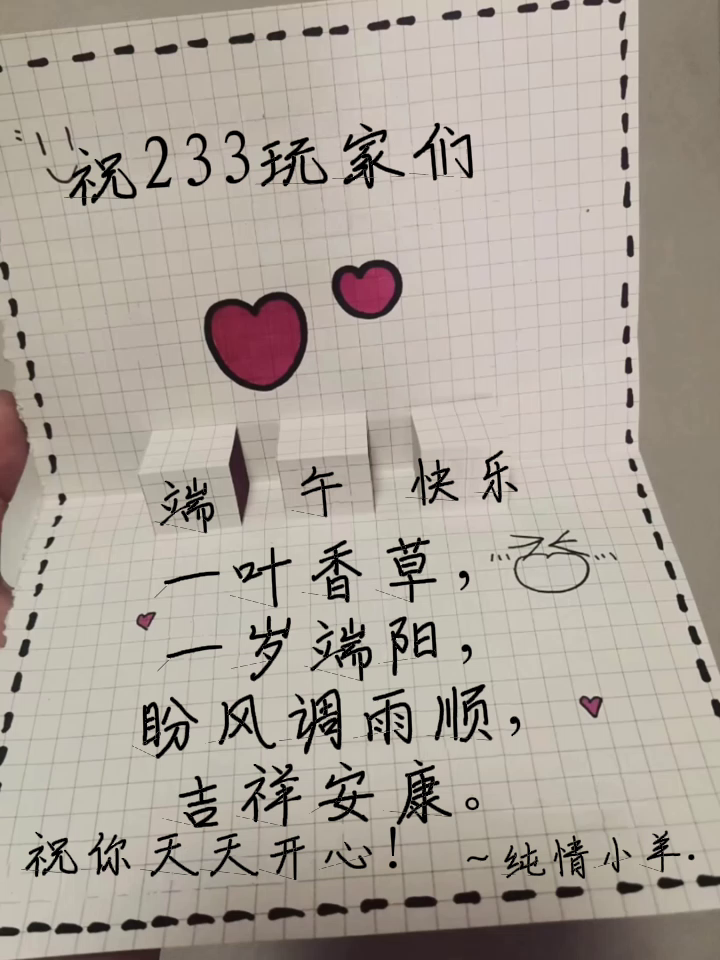 祝233玩家们
端午快乐
一叶香草，
一岁端阳，
盼风调雨顺，
吉祥安康。
祝你天天开心！
~纯情小羊.